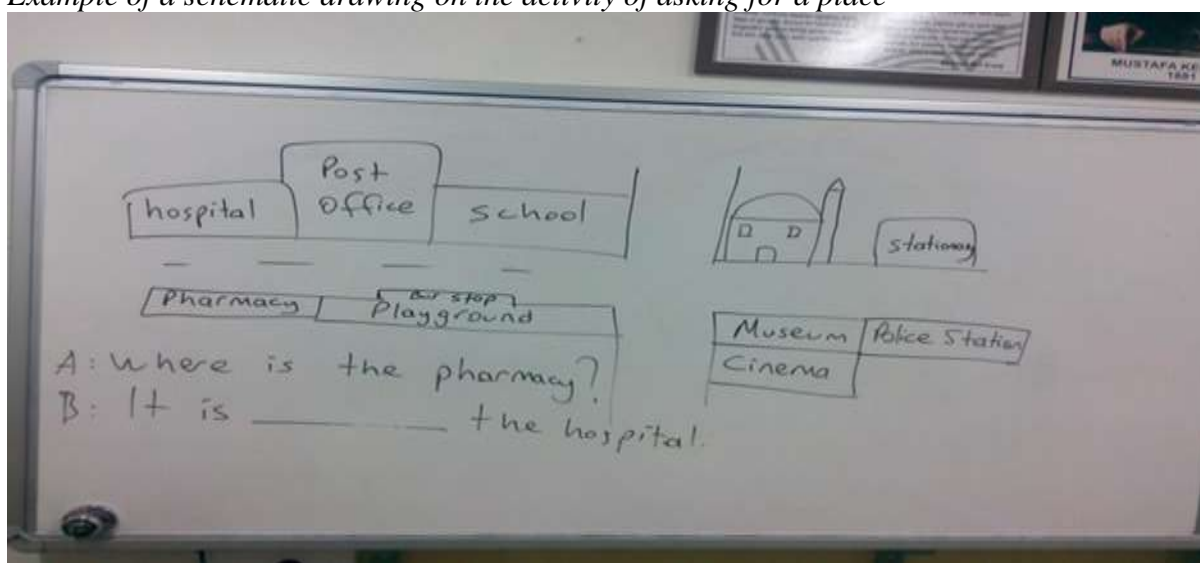 Example of a schematic drawing on the activity of asking for a place
MUSTAFA KE
1881
Post
Office
hospital
School
stationary
Pharmacy
Bus stop
Playground
Museum
Police Station
Cinema
A: Where is the pharmacy?
B: It is ________ the hospital.